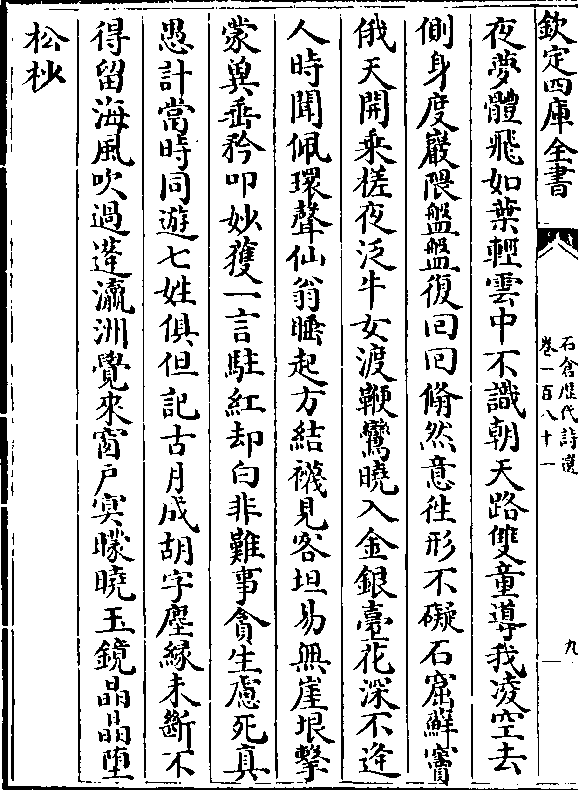 欽定四庫全書
石倉歷代詩選
卷一百八十一
九
夜夢體飛如葉輕雲中不識朝天路雙童導我凌空去
側身度巖隈盤盤復回回翛然意徃形不礙石窟蘚竇
俄天開乘槎夜泛牛女渡鞭鸞曉入金銀臺花深不逢
人時聞佩環聲仙翁睡起方結襪見客坦易無崖垠擊
蒙兾垂矜叩妙獲一言駐紅却白非難事貪生慮死真
愚計當時同遊七姓俱但記古月成胡字塵緣未斷不
得留海風吹過瀛洲覺來窗户㝠矇曉玉鏡晶晶墮
松杪